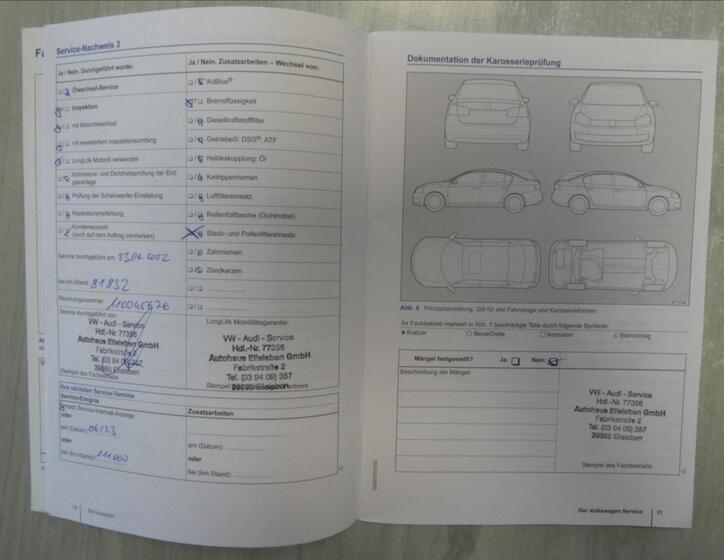 Service-Nachweis 3
Ja / Nein. Durchgeführt wurde:
Ölwechsel-Service
Inspektion
mit Motorölwechsel
mit erweitertem Inspektionsumfang
LongLife Motoröl verwendet
Korrosions- und Dichtheitsprüfung der Erd-
gasanlage
Prüfung der Scheinwerfer-Einstellung
Reparaturempfehlung
Kundenwunsch
(auch auf dem Auftrag vermerken)
Service durchgeführt am: 23.06.2022
bei km-Stand: 81832
Rechnungsnummer: 110045676
Service durchgeführt von:
VW - Audi - Service
Hdl.-Nr. 77356
Autohaus Eilsleben GmbH
Fabrikstraße 2
Tel. (03 94 09) 357
39365 Eilsleben
Stempel des Fachbetriebs
Ihre nächsten Service-Termine
Service-Ereignis
nach Service-Intervall-Anzeige
oder
am (Datum): 06/23
oder
bei (km-Stand): 111.000
10 Serviceplan
Ja / Nein. Zusatzarbeiten – Wechsel von:
AdBlue®
Bremsflüssigkeit
Dieselkraftstofffilter
Getriebeöl: DSG®, ATF
Haldexkupplung: Öl
Keilrippenriemen
Luftfiltereinsatz
Reifenfüllflasche (Dichtmittel)
Staub- und Pollenfiltereinsatz
Zahnriemen
Zündkerzen
LongLife Mobilitätsgarantie:
VW - Audi - Service
Hdl.-Nr. 77356
Autohaus Eilsleben GmbH
Fabrikstraße 2
Tel. (03 94 09) 357
39365 Eilsleben
Zusatzarbeiten
am (Datum):
oder
bei (km-Stand):
Dokumentation der Karosserieprüfung
Abb. 5 Prinzipdarstellung. Gilt für alle Fahrzeuge und Karosserieformen.
Ihr Fachbetrieb markiert in Abb. 5 beschädigte Teile durch folgende Symbole:
Kratzer Beule/Delle Korrosion Steinschlag
Mängel festgestellt? Ja: Nein:
Beschreibung der Mängel:
VW - Audi - Service
Hdl.-Nr. 77356
Autohaus Eilsleben GmbH
Fabrikstraße 2
Tel. (03 94 09) 357
39365 Eilsleben
Stempel des Fachbetriebs
Der Volkswagen Service 11